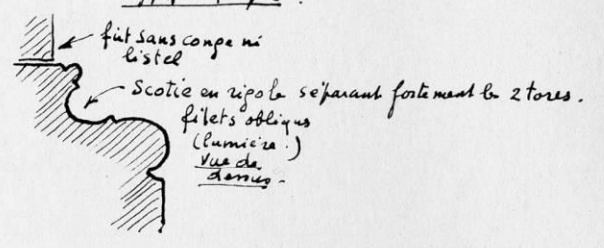 fût sans congé ni
listel
Scotie en rigole séparant fortement les 2 tores.
filets obliques
(lumière.)
vue de
dessus.